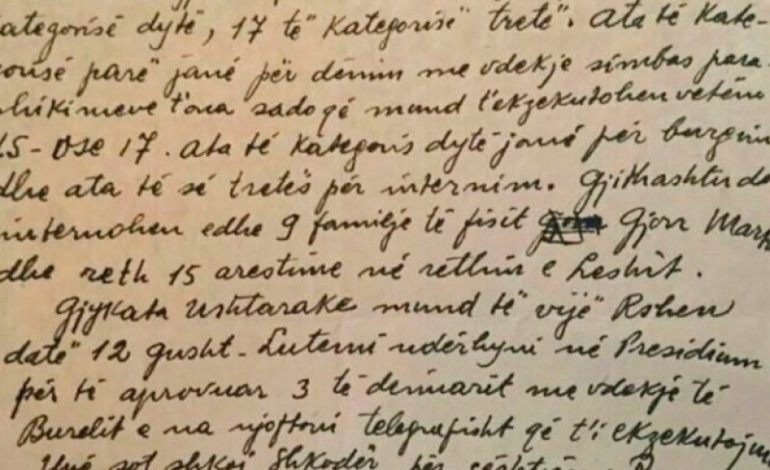 kategorisë dytë, 17 të kategorisë tretë. Ata të kate-
gorisë parë janë për dënim me vdekje simbas para-
shikimeve t'ona sado që mund t'ekzekutohen vetëm
15 - ose 17. Ata të kategoris dytë janë për burgim
dhe ata të së tretës për internim. Gjithashtu do
internohen edhe 9 familje të fisit Gjon Mark
dhe reth 15 arestime në rethin e Leshit.
Gjykata Ushtarake mund të vijë Rshen
datë 12 gusht - Lutemi ndërhyni në Presidium
për të aprovuar 3 të denuarit me vdekje të
Burelit e na njoftoni telegrafisht që t'i ekzekutojm
Unë sot shkoj Shkodër për